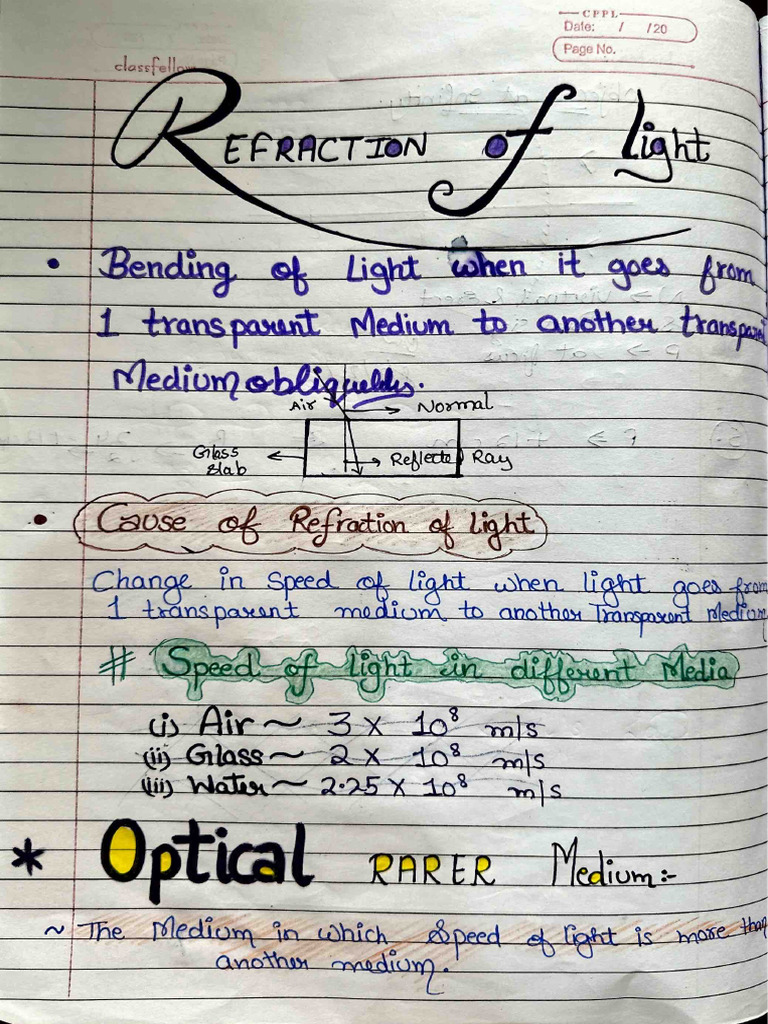 CPPL
Date: / /20
Page No.
classfellow
REFRACTION of Light
• Bending of Light when it goes from
1 transparent Medium to another transpare
Medium obliquely.
Air
Normal
Glass
Slab
Reflecte Ray
• Cause of Refraction of light
Change in Speed of light when light goes from
1 transparent medium to another Transparent Medium
# Speed of light in different Media
(i) Air ~ 3 X 10⁸ m/s
(ii) Glass ~ 2 X 10⁸ m/s
(iii) Water ~ 2.25 X 10⁸ m/s
* Optical RARER Medium:-
~ The Medium in which Speed of light is more than
another medium.